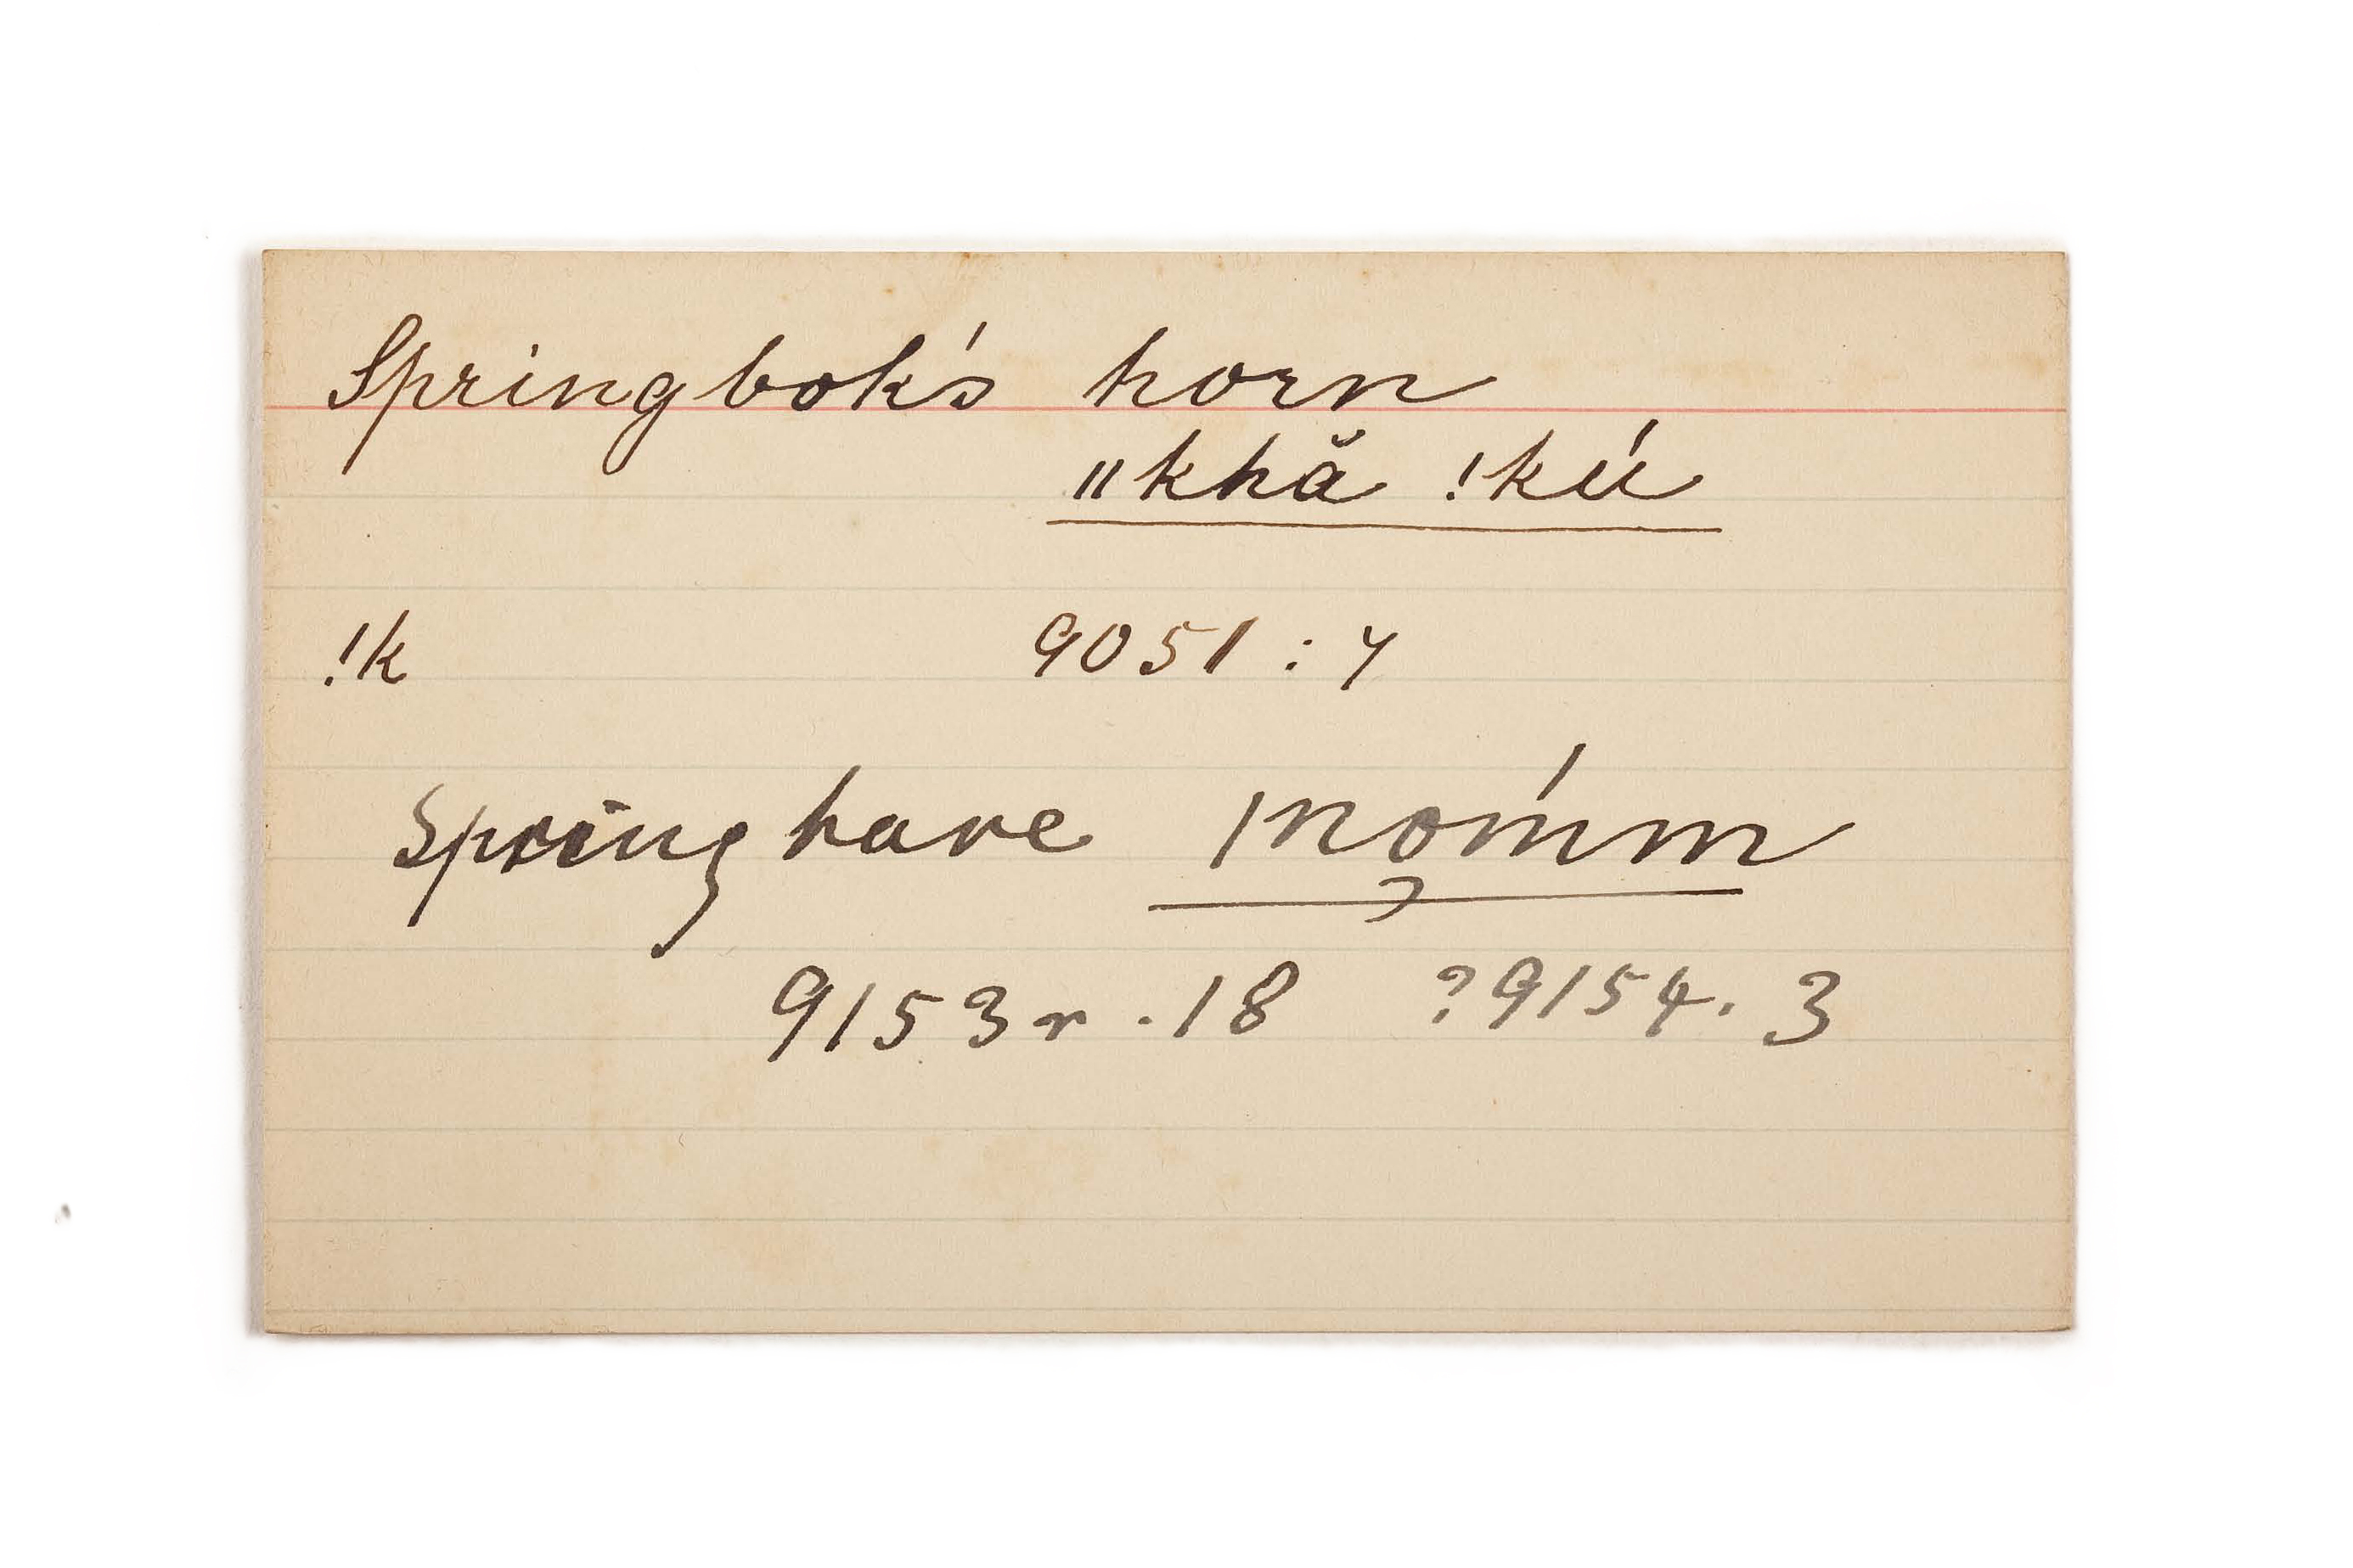 Springbok's horn
ǁkhă !kú
!k 9051 : 7
Springhare ǀnǫ́mm
9153r . 18 ? 9154 . 3